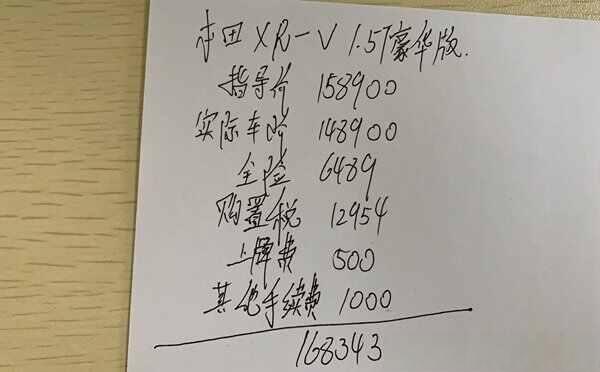 本田 XR-V 1.5T豪华版.
指导价 158900
实际车价 148900
全险 6489
购置税 12954
上牌费 500
其他手续费 1000
168343